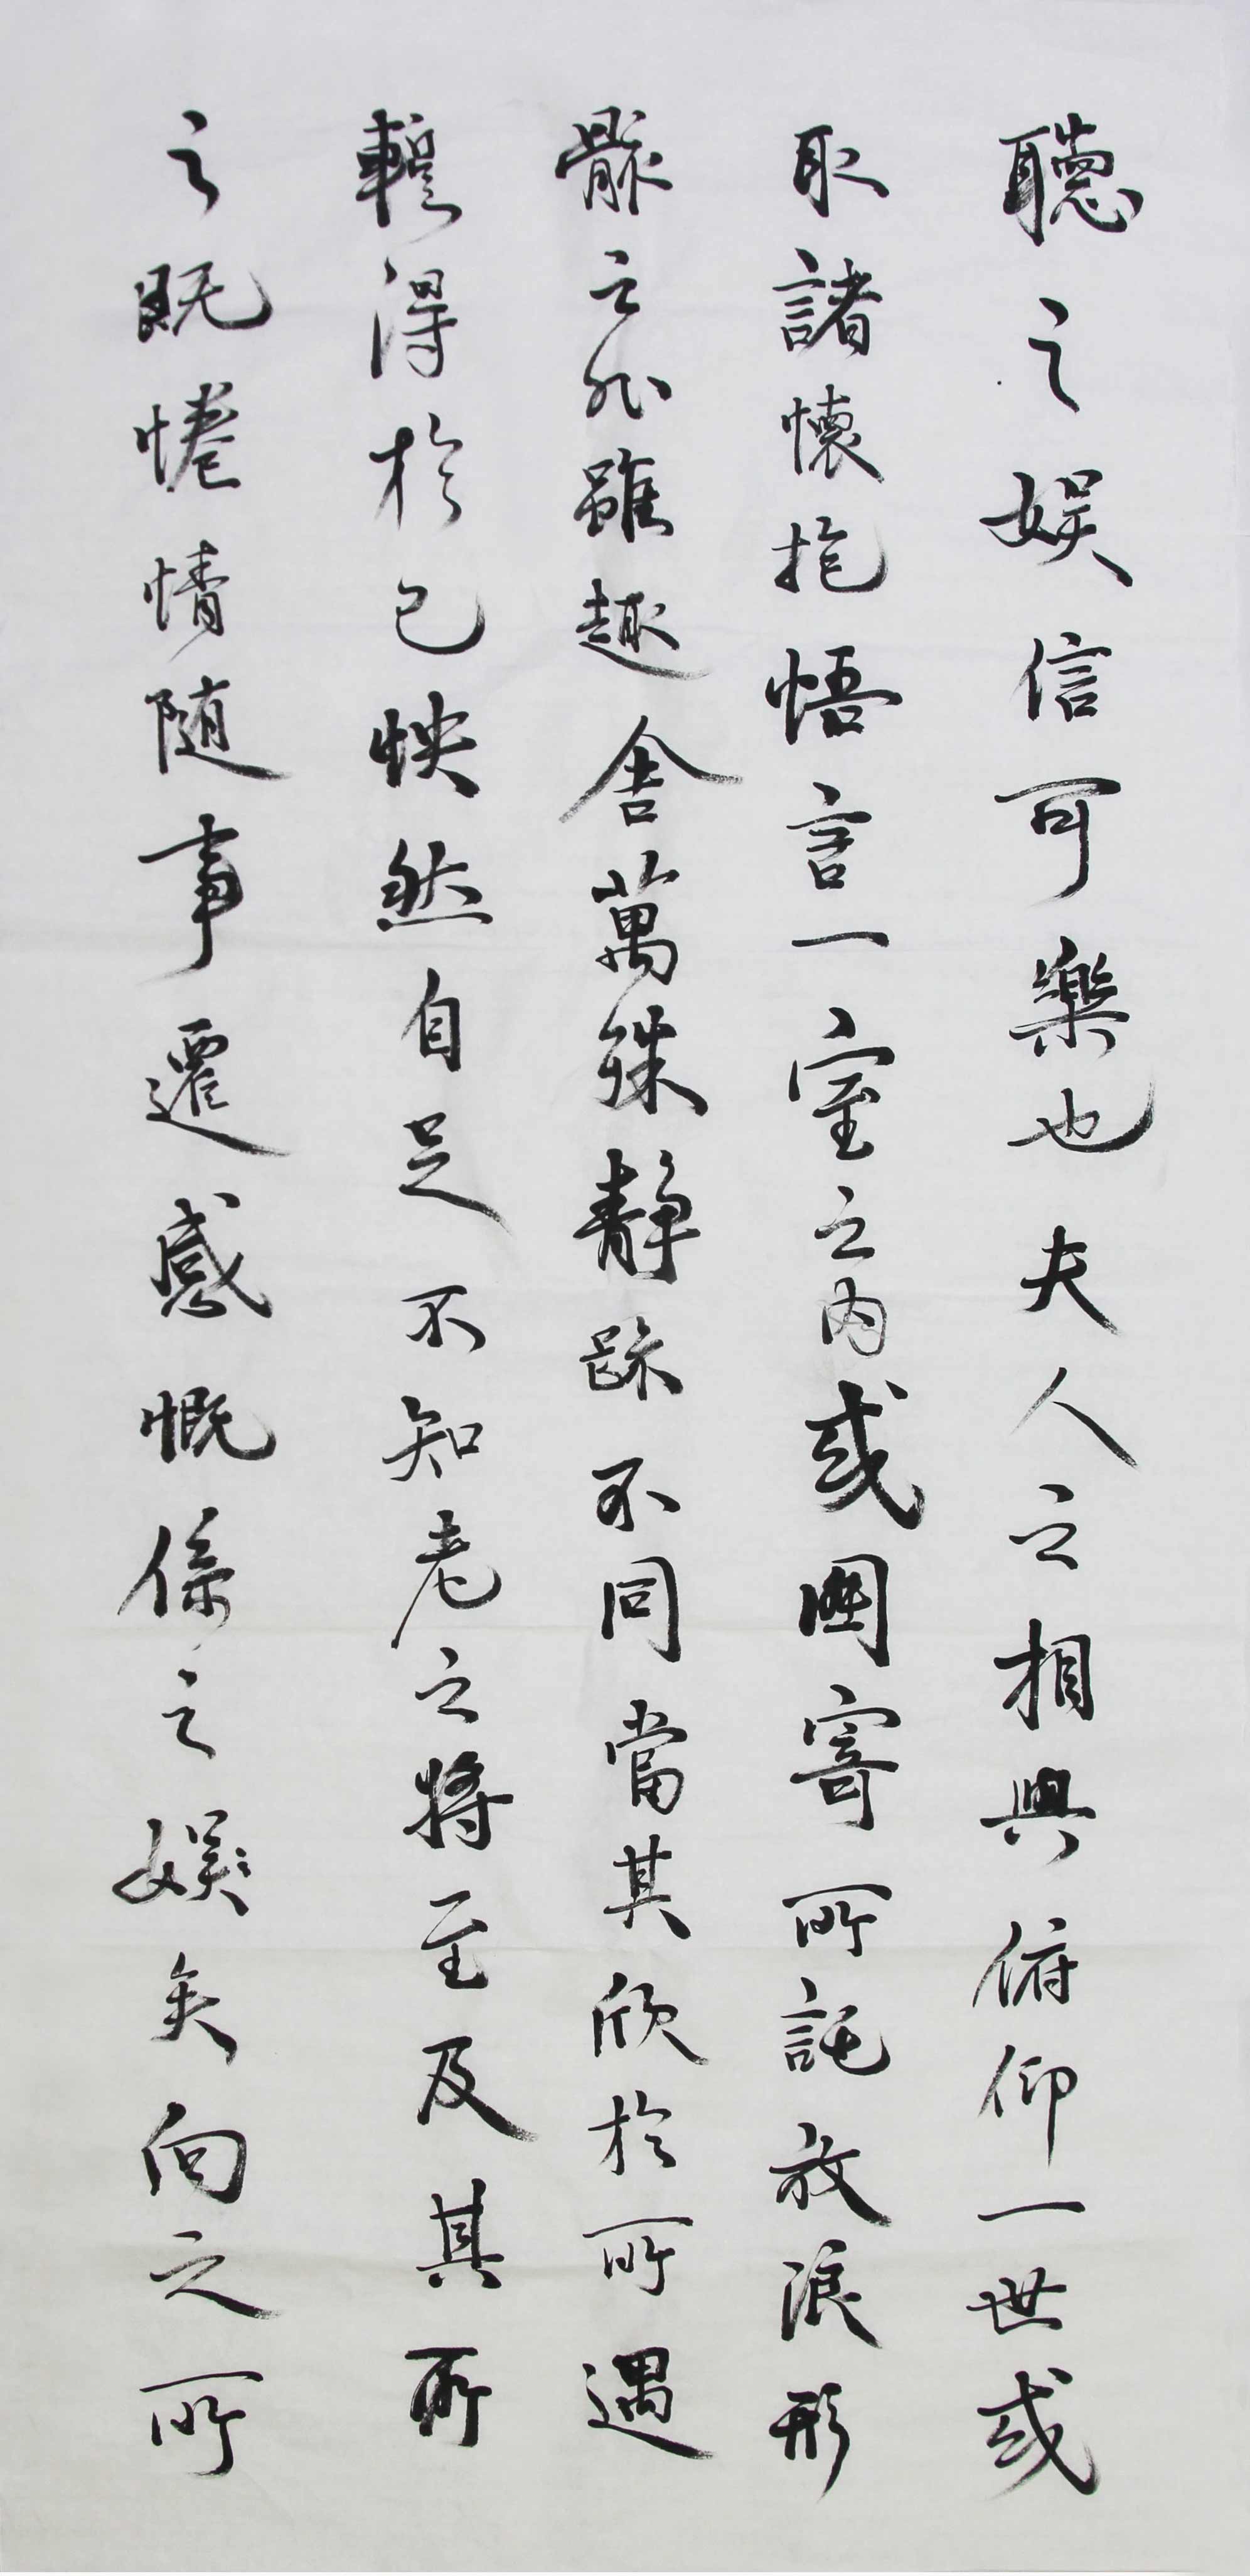 聽之娛信可樂也夫人之相與俯仰一世或
取諸懷抱悟言一室之內或因寄所託放浪形
骸之外雖趣舍萬殊靜躁不同當其欣於所遇
暫得於己怏然自足不知老之將至及其所
之既惓情隨事遷感慨係之娛矣向之所